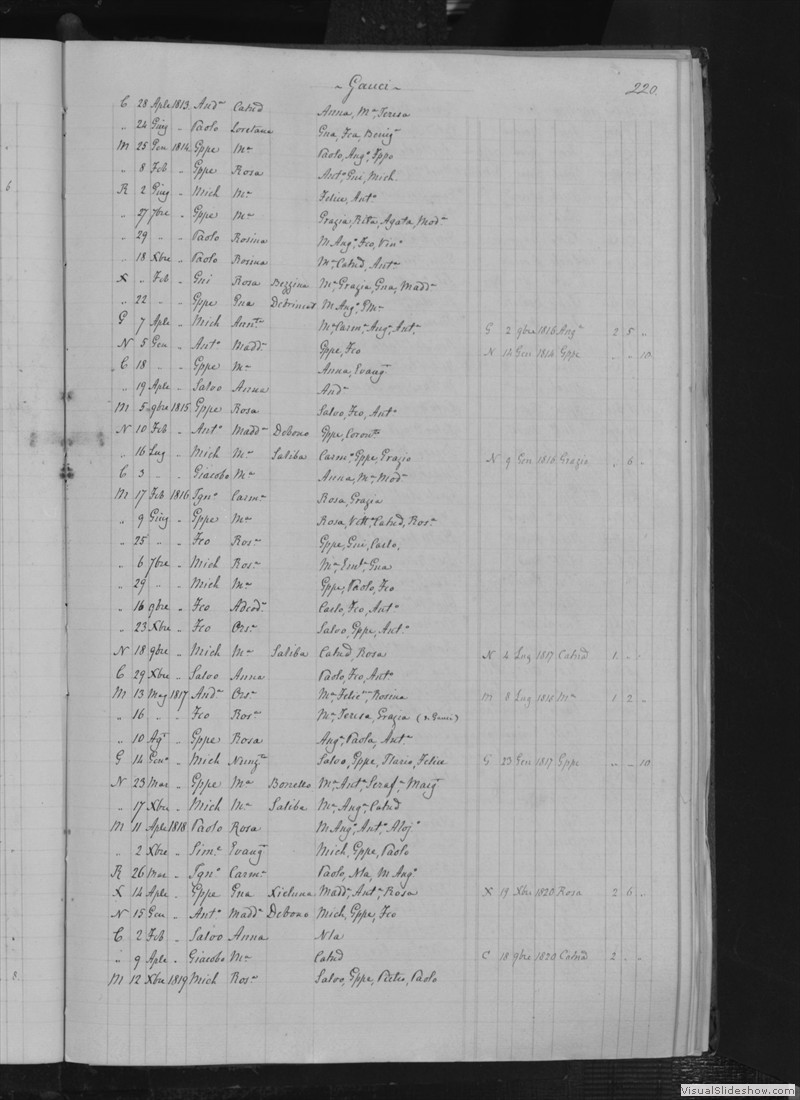 ~ Gauci ~ 220.
C 28 Aple 1813. And.ª Catnd Anna, M.ª Teresa
" 24 Giug " Paolo Loretana Gna, Fca, Benig.ª
M 25 Gen 1814. Gppe M.ª Paolo, Ang.º, Fppo
" 8 Feb " Gppe Rosa Ant.º, Gni, Mich.
R 2 Giug " Mich M.ª Felice, Ant.ª
" 27 7bre " Gppe M.ª Grazia, Rita, Agata, Mod.ª
" 29 " " Paolo Rosina M Ang.º, Fco, Vin.º
" 18 Xbre " Paolo Rosina M.ª Catnd, Ant.ª
X " Feb " Gni Rosa Bezzina M.ª Grazia, Gna, Madd.ª
" 22 " " Gppe Gna Debrincat M Ang.º
G 7 Aple " Mich Ann.ta M.ª Carm.ª, Ang.ª, Ant.ª G 2 9bre 1816 Ang.ª 2 5 "
N 5 Gen " Ant.º Madd.ª Gppe, Fco N 14 Gen 1814 Gppe " " 10
C 18 " " Gppe M.ª Anna, Evang.ª
" 19 Aple " Salvo Anna And.ª
M 5 9bre 1815. Gppe Rosa Salvo, Fco, Ant.º
N 10 Feb " Ant.º Madd.ª Debono Gppe, Coron.ta
" 16 Lug " Mich M.ª Saliba Carm.º, Gppe, Grazio N 9 Gen 1816 Grazio " 6 "
C 3 " " Giacobo M.ª Anna, M.ª Mod.ª
M 17 Feb 1816. Ign.º Carm.ª Rosa, Grazia
" 9 Giug " Gppe M.ª Rosa, Vitt.ª, Catnd, Ros.ª
" 25 " " Fco Ros.ª Gppe, Gni, Carlo,
" 6 7bre " Mich Ros.ª M.ª Em.la, Gna
" 29 " " Mich M.ª Gppe, Paolo, Fco
" 16 9bre " Fco Adeod.ª Carlo, Fco, Ant.º
" 23 Xbre " Fco Ors.ª Salvo, Gppe, Ant.º
N 18 9bre " Mich M.ª Saliba Catnd, Rosa N 4 Lug 1817 Catnd 1 " "
C 29 Xbre " Salvo Anna Paolo, Fco, Ant.º
M 13 Mag 1817 And.ª Ors.ª M.ª Felic.ª, Rosina M 8 Lug 1818 M.ª 1 2 "
" 16 " " Fco Ros.ª M.ª Teresa, Grazia
" 10 Ag.º " Gppe Rosa Ang.º, Paola, Ant.ª
G 14 Gen.º " Mich Nunz.ª Salvo, Gppe, Ilario, Felice G 23 Gen 1817 Gppe " " 10
N 23 Mar " Gppe M.ª Bonello M.ª Ant.ª, Seraf.ª Marg.ª
" 17 Xbre " Mich M.ª Saliba M.ª Ang.ª Catnd
M 11 Aple 1818 Paolo Rosa M Ang.º, Ant.º, Aloj.º
" 2 Xbre " Sim.e Evang.ª Mich, Gppe, Paolo
R 26 Mar " Ign.º Carm.ª Paolo, Nla, M Ang.º
X 14 Aple " Gppe Gna Xicluna Madd.ª, Ant.ª, Rosa X 19 Xbre 1820 Rosa 2 6 "
N 15 Gen " Ant.º Madd.ª Debono Mich, Gppe, Fco
C 2 Feb " Salvo Anna Nla
" 9 Aple " Giacobo M.ª Catnd C 18 9bre 1820 Catnd 2 " "
M 12 Xbre 1819 Mich Ros.ª Salvo, Gppe, Pietro, Paolo
VisualSlideshow.com